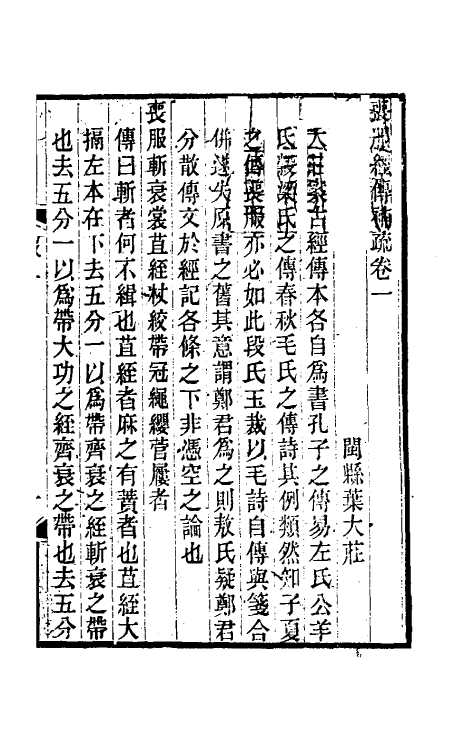 喪服經傳補疏卷一
閩縣葉大莊
大莊案古經傳本各自爲書孔子之傳易左氏公羊
氏穀梁氏之傳春秋毛氏之傳詩其例類然知子夏
之傳喪服亦必如此段氏玉裁以毛詩自傳與箋合
併遂失原書之舊其意謂鄭君爲之則敖氏疑鄭君
分散傳文於經記各條之下非憑空之論也
喪服斬衰裳苴絰杖絞帶冠繩纓菅屨者
傳曰斬者何不緝也苴絰者麻之有蕡者也苴絰大
搹左本在下去五分一以爲帶齊衰之絰斬衰之帶
也去五分一以爲帶大功之絰齊衰之帶也去五分